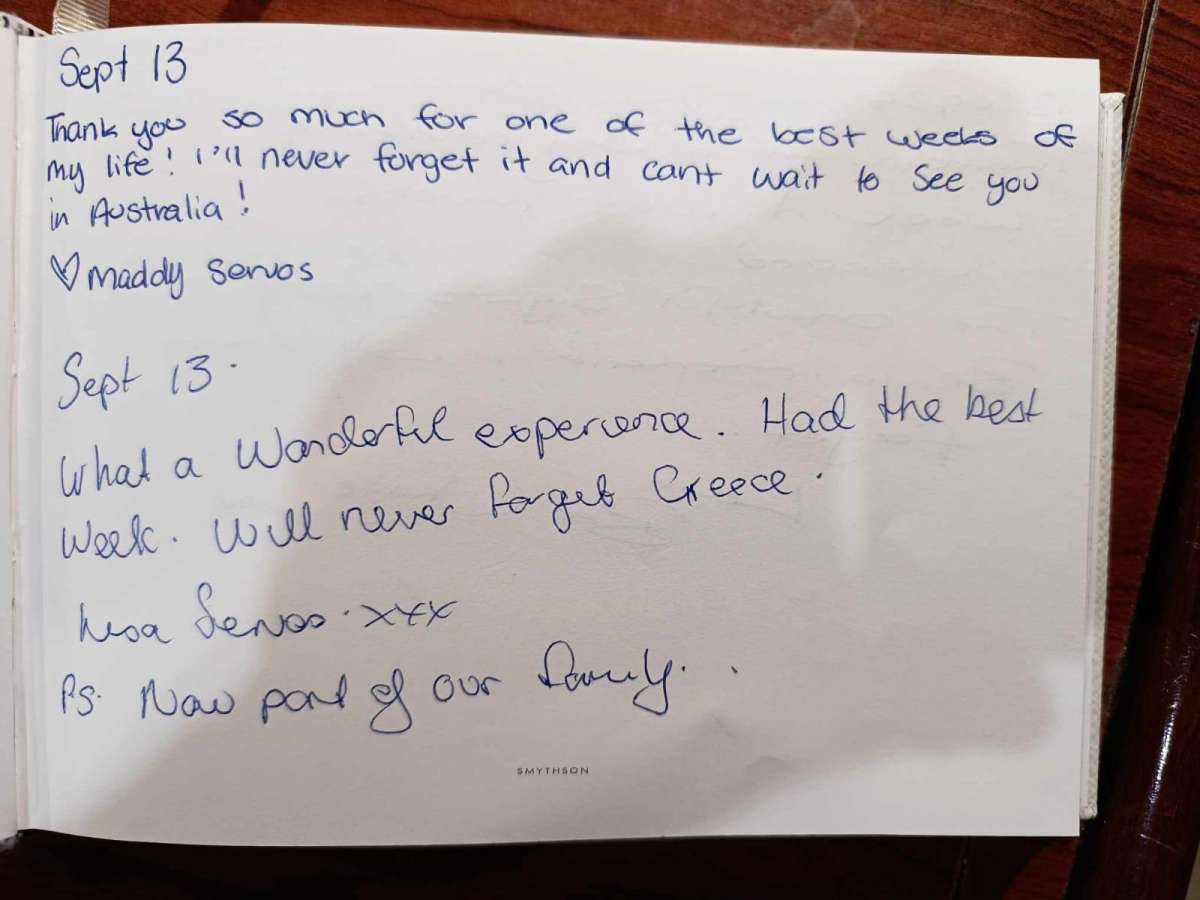 Sept 13
Thank you so much for one of the best weeks of
my life! I'll never forget it and cant wait to see you
in Australia!
♡ Maddy Servos
Sept 13.
What a Wonderful experience. Had the best
Week. Will never forget Greece.
Servos. xxx
Ps. Now part of our family.
SMYTHSON